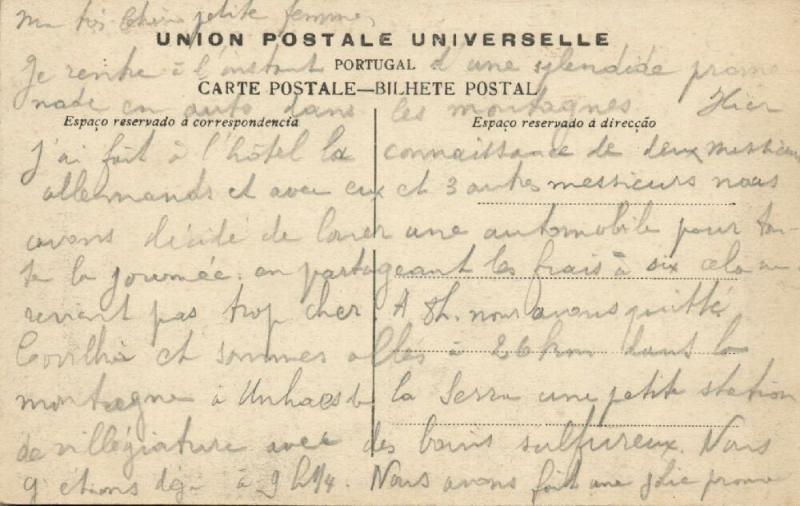 Ma très chère petite femme,
UNION POSTALE UNIVERSELLE
Je rentre à l'instant d'une splendide prome
PORTUGAL
CARTE POSTALE—BILHETE POSTAL
nade en auto dans les montagnes Hier
Espaço reservado á correspondencia
Espaço reservado á direcção
J'ai fait à l'hôtel la connaissance de deux messieurs
allemands et avec eux et 3 autres messieurs nous
avons décidé de louer une automobile pour tou-
te la journée. en partageant les frais à six cela ne
revient pas trop cher. A 8h. nous avons quitté
Covilhã et sommes allés à 26 km dans la
montagne à Unhaes de la Serra une petite station
de villégiature avec des bains sulfureux. Nous
y étions déjà à 9 h 1/4. Nous avons fait une jolie prome